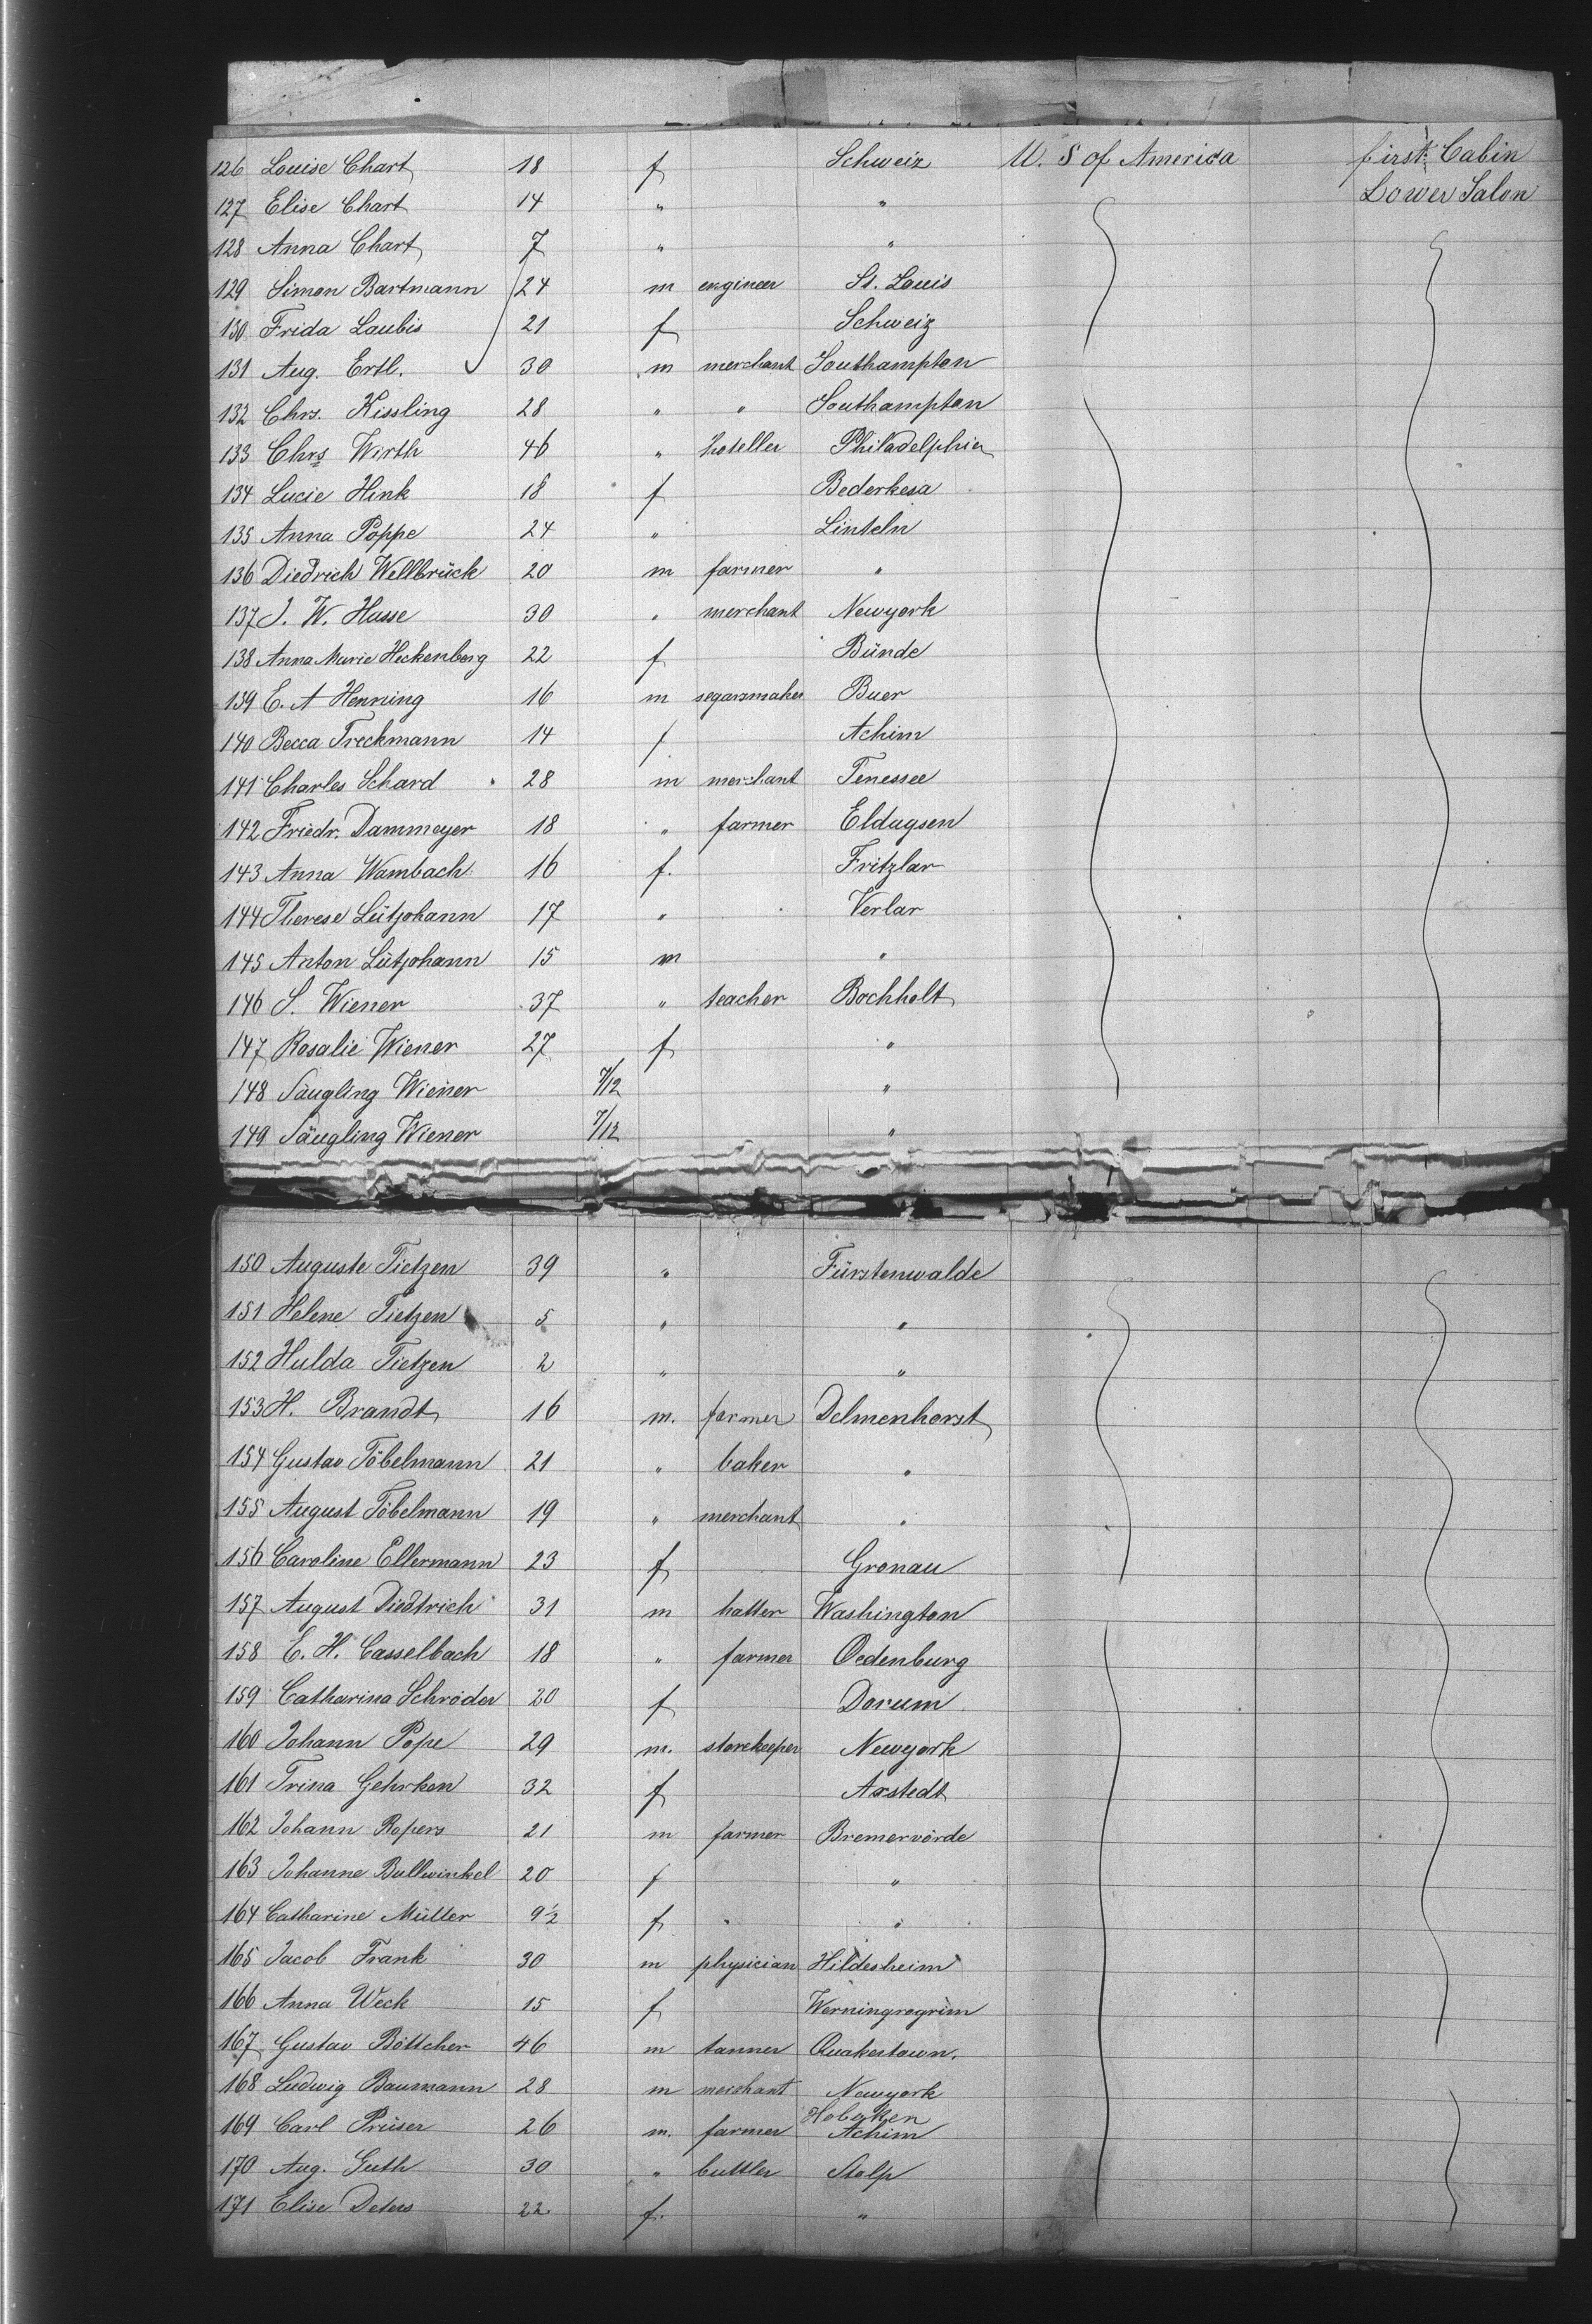 126 Louise Chart 18 f Schweiz U. S of America first Cabin
127 Elise Chart 14 " " Lower Salon
128 Anna Chart 7 " "
129 Simon Bartmann 24 m engineer St. Louis
130 Frida Laubis 21 f Schweiz
131 Aug. Ertl. 30 m merchant Southampton
132 Chrs. Kissling 28 " " Southampton
133 Chrs Wirth 46 " hoteller Philadelphia
134 Lucie Hink 18 f Bederkesa
135 Anna Poppe 24 " Linteln
136 Diedrich Wellbrück 20 m farmer "
137 J. W. Hasse 30 " merchant Newyork
138 Anna Marie Heckenberg 22 f Bünde
139 E. A Henning 16 m segarsmaker Buer
140 Becca Treckmann 14 f Achim
141 Charles Schard 28 m merchant Tenessee
142 Friedr. Dammeyer 18 " farmer Eldagsen
143 Anna Wambach 16 f. Fritzlar
144 Therese Lütjohann 17 " Verlar
145 Anton Lütjohann 15 m "
146 S. Wiener 37 " teacher Bochholt
147 Rosalie Wiener 27 f "
148 Säugling Wiener 7/12 "
149 Säugling Wiener 7/12 "
150 Auguste Tietzen 39 " Fürstenwalde
151 Helene Tietzen 5 " "
152 Hulda Tietzen 2 " "
153 H. Brandt 16 m. farmer Delmenhorst
154 Gustav Töbelmann 21 " baker "
155 August Töbelmann 19 " merchant "
156 Caroline Ellermann 23 f Gronau
157 August Diedtrich 31 m hatter Washington
158 E. H. Casselbach 18 " farmer Oedenburg
159 Catharina Schröder 20 f Dorum
160 Johann Pope 29 m. storekeeper Newyork
161 Trina Gehrken 32 f Axstedt
162 Johann Ropers 21 m farmer Bremervörde
163 Johanne Bullwinkel 20 f "
164 Catharine Müller 9½ f "
165 Jacob Frank 30 m physician Hildesheim
166 Anna Weck 15 f
167 Gustav Böttcher 46 m tanner Quakertown.
168 Ludwig Baumann 28 m merchant Newyork
Hoboken
169 Carl Prüser 26 m. farmer Achim
170 Aug. Guth 30 " buttler Stolp
171 Elise Deters 22 f. "